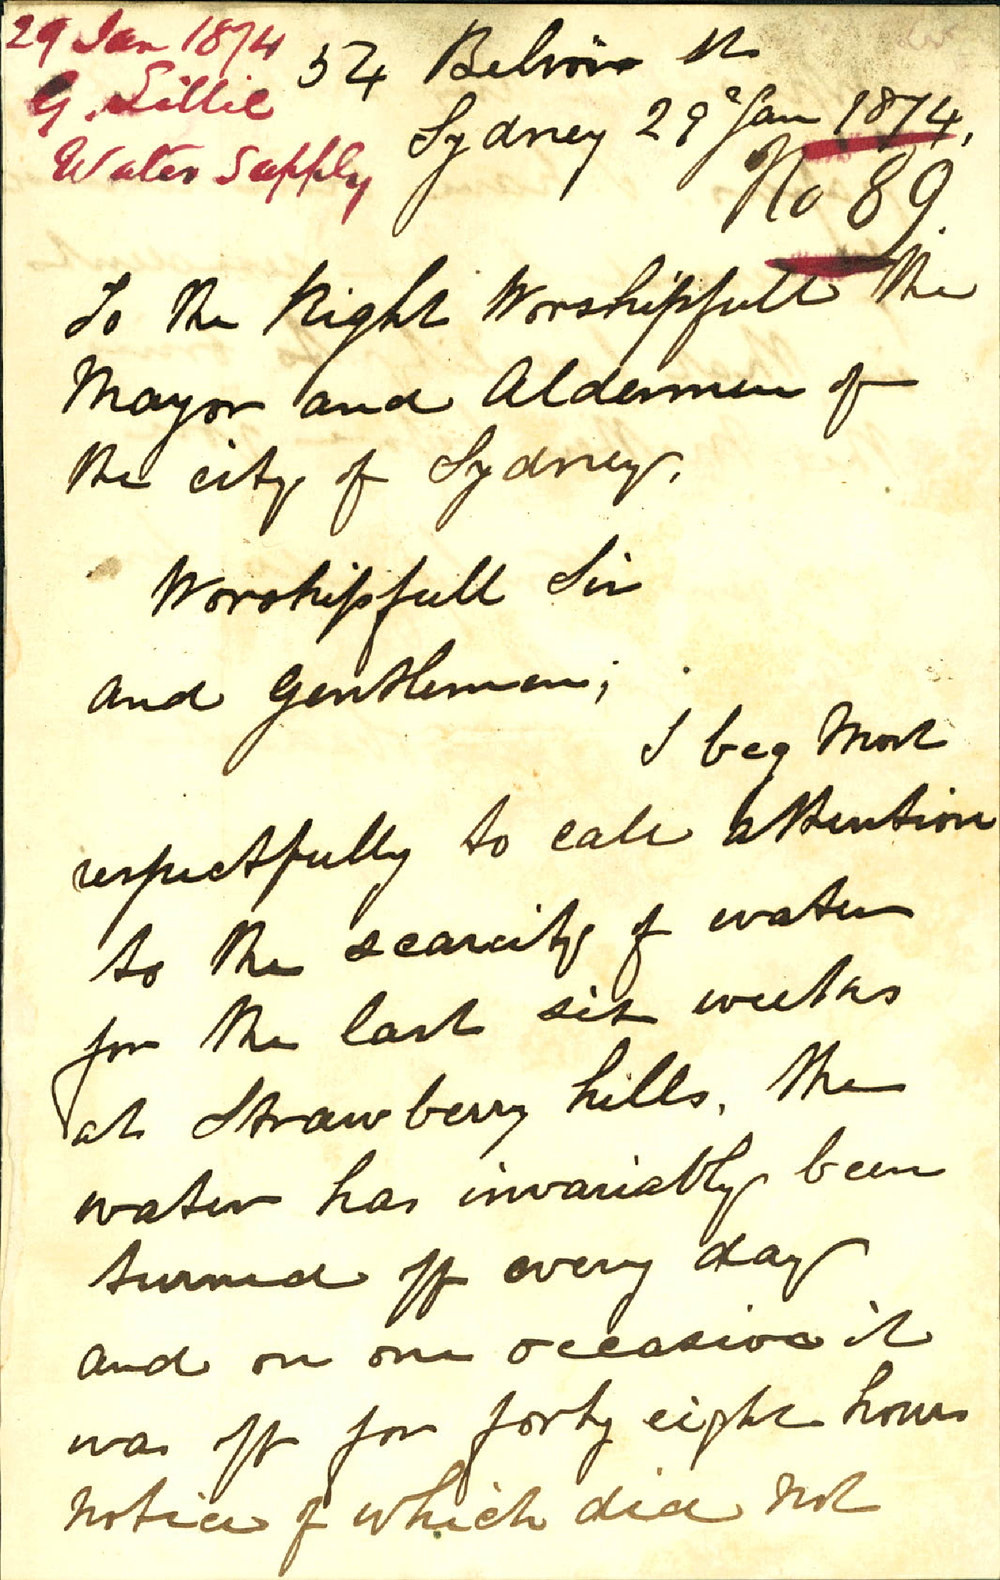 29 Jan 1874
G. Lillie
Water Supply
54 Belvoir st
Sydney 29 Jan 1874.
No 89.
To the Right Worshipfull the
Mayor and Aldermen of
the city of Sydney.
Worshipfull Sir
and Gentlemen;
I beg most
respectfully to call attention
to the scarcity of water
for the last six weeks
at Strawberry hills. The
water has invariably been
turned off every day
and on one occasion it
was off for forty eight hours
notice of which did not